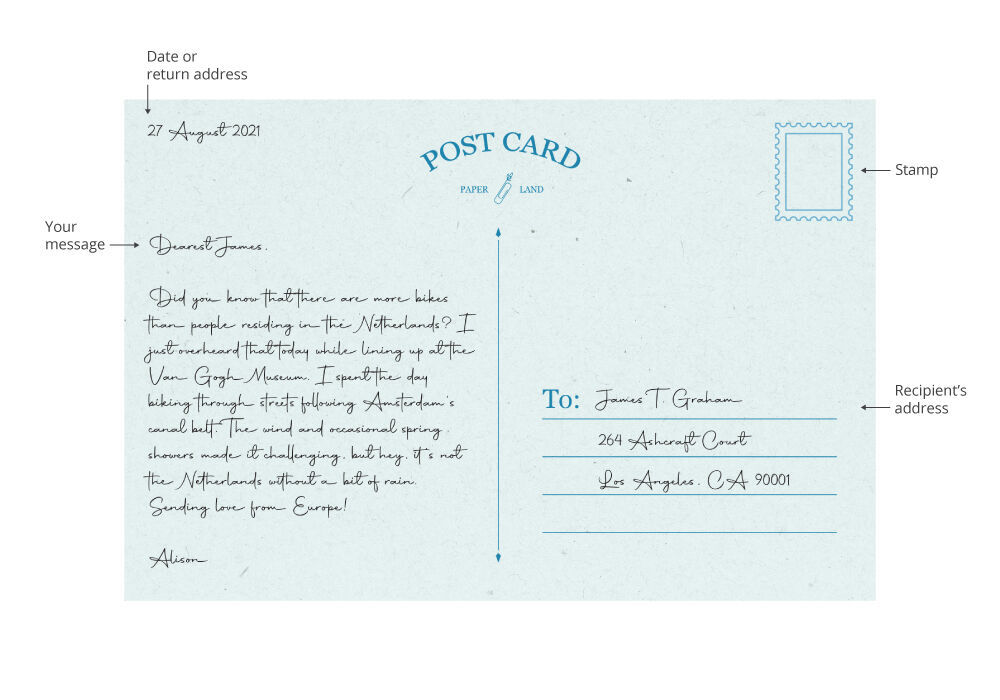 Date or
return address
27 August 2021
POST CARD
PAPER LAND
Stamp
Your
message
Dearest James,
Did you know that there are more bikes
than people residing in the Netherlands? I
just overheard that today while lining up at the
Van Gogh Museum. I spent the day
biking through streets following Amsterdam's
canal belt. The wind and occasional spring
showers made it challenging, but hey, it's not
the Netherlands without a bit of rain.
Sending love from Europe!
Alison
To: James T. Graham
264 Ashcraft Court
Los Angeles, CA 90001
Recipient's
address